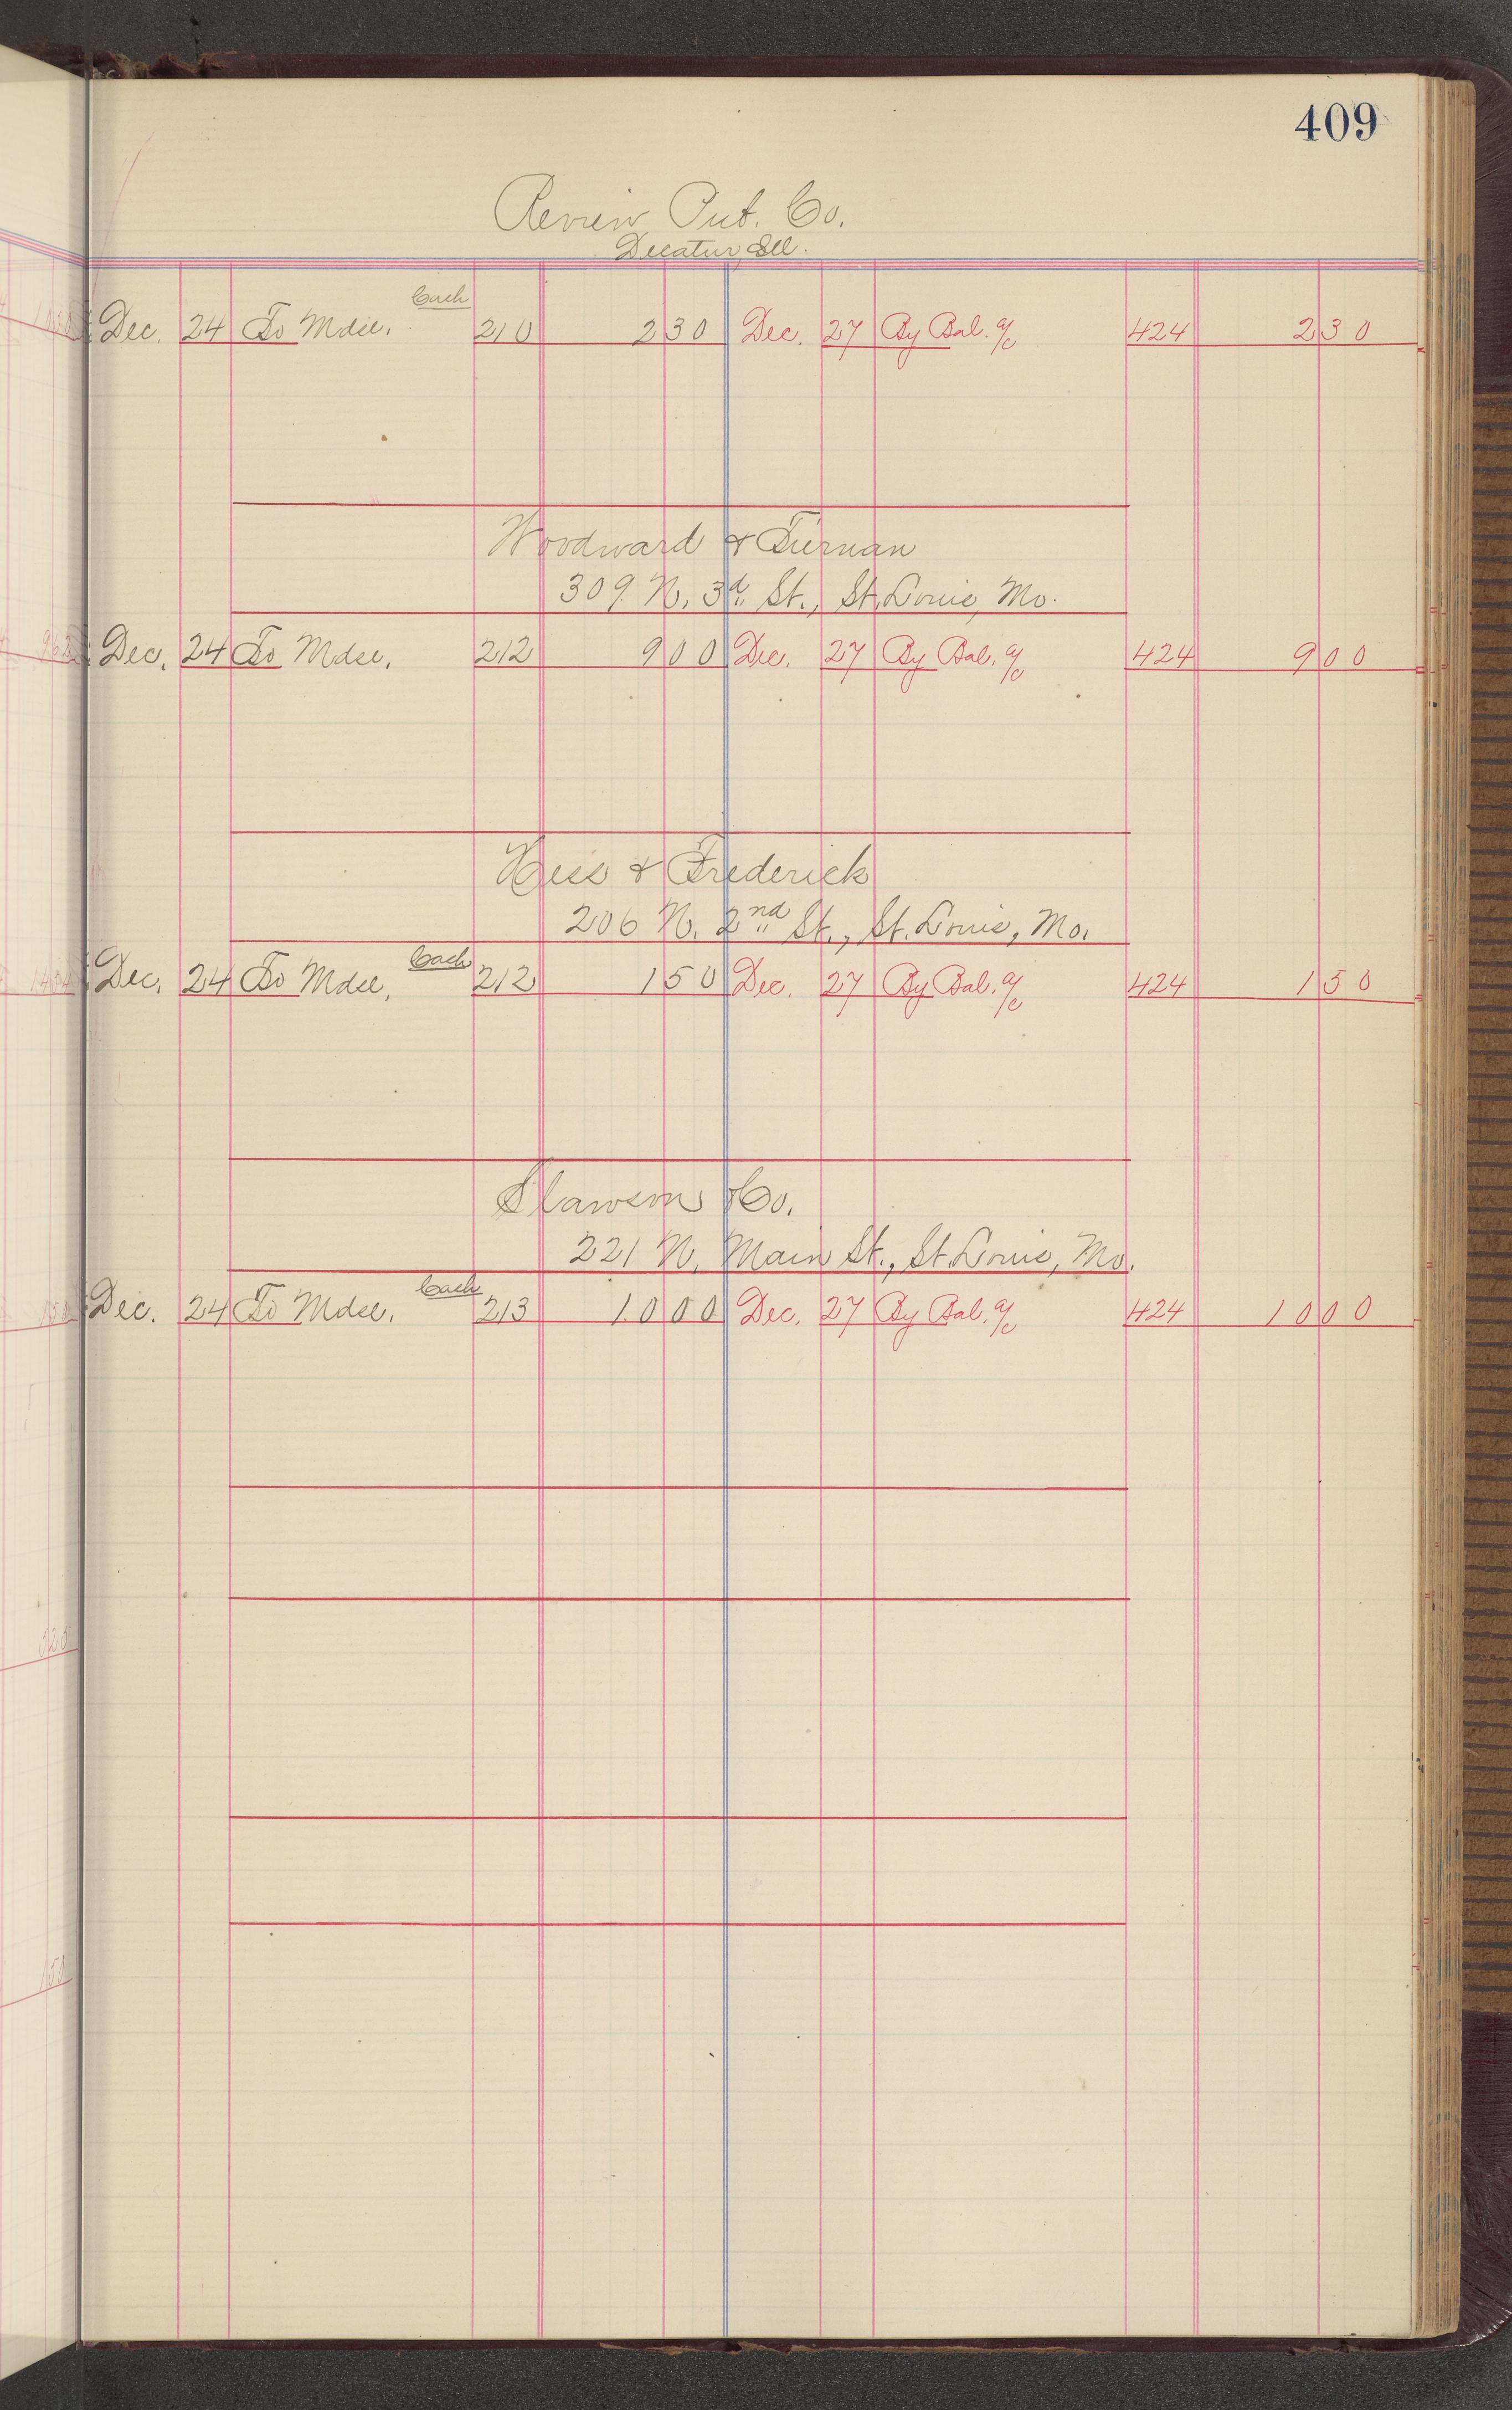 409
Review Pub. Co.
Decatur, Ill.
Dec. 24 To Mdse. Cash 210 2 30 Dec. 27 By Bal. a/c 424 2 30
Woodward & Tiernan
309 N. 3d St., St. Louis, Mo.
Dec. 24 To Mdse. 212 9 00 Dec. 27 By Bal. a/c 424 9 00
Hess & Frederick
206 N. 2nd St., St. Louis, Mo.
Dec. 24 To Mdse. Cash 212 1 50 Dec. 27 By Bal. a/c 424 1 50
Slawson & Co.
221 N. Main St., St. Louis, Mo.
Dec. 24 To Mdse. Cash 213 10 00 Dec. 27 By Bal. a/c 424 10 00